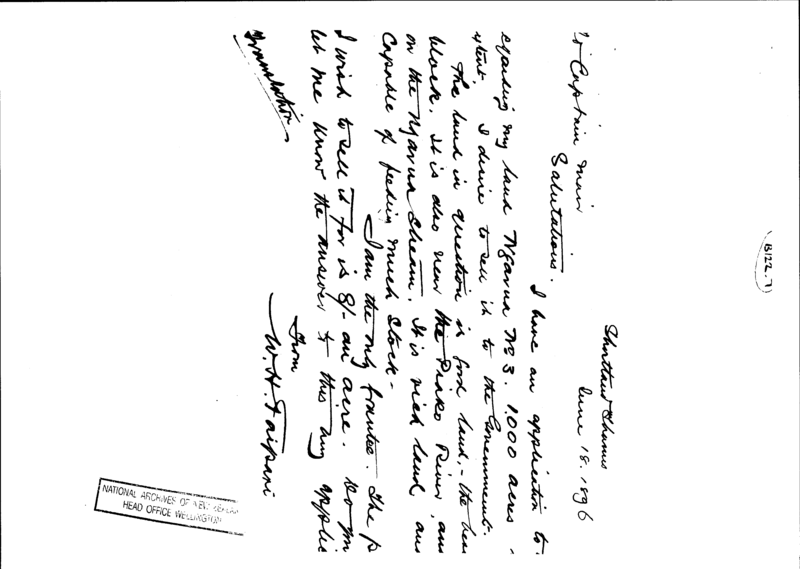 (B122.7)
Shortland Thames
June 18. 1896
To Captain Mair
Salutations.
I have an application to
regarding my land Ngarua No 3. 1,000 acres
extent. I desire to sell it to the Government.
The land in question is good land,- the best
block. It is also near the Piako River, and
on the Ngarua Stream. It is rich land, and
Capable of feeding much Stock-
I am the only grantee. The p
I wish to sell it for is 8/- an acre. Do you
let me know the answer to this my applic
From
W.H. Taipari
Translation
NATIONAL ARCHIVES OF NEW ZEALAND
HEAD OFFICE WELLINGTON